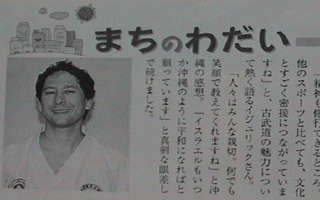 まちのわだい
「精神も修行できるところ。
他のスポーツと比べても、文化
とすごく密接につながっていま
すね」と、古武道の魅力につい
て熱く語るイジェリックさん。
「人々はみんな親切。何でも
笑顔で教えてくれますね」と沖
縄の感想。「イスラエルもいつ
か沖縄のように平和になればと
願っています」と真剣な眼差し
で続けました。